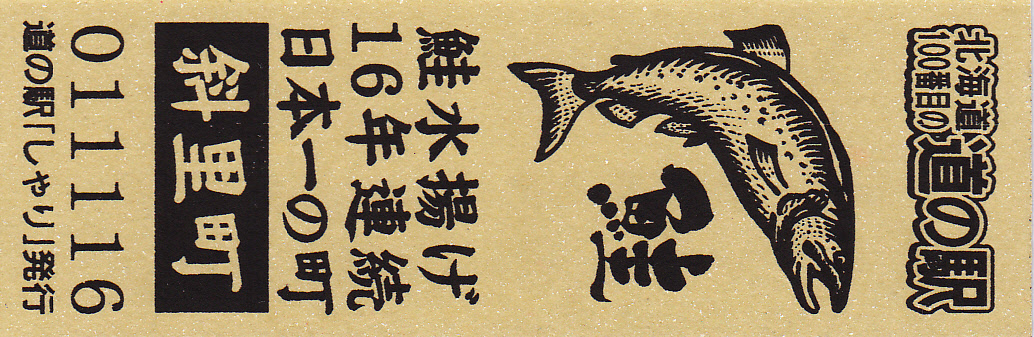 北海道
100番目の
道の駅
鮭水揚げ
16年連続
日本一の町
斜里町
011116
道の駅「しゃり」発行